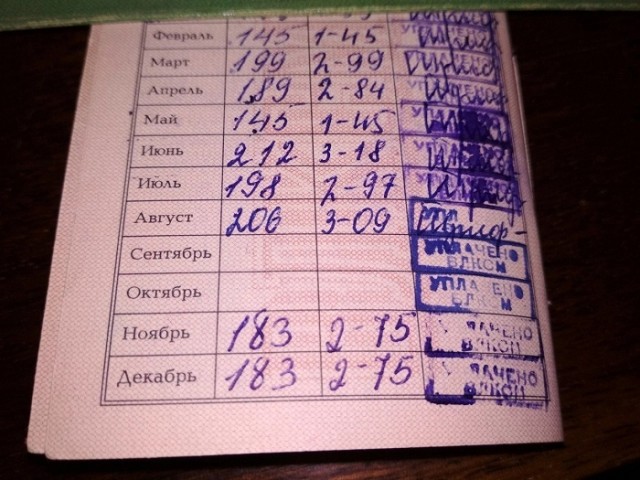 Февраль 145 1-45
Март 199 2-99
Апрель 189 2-84
Май 145 1-45
Июнь 212 3-18
Июль 198 2-97
Август 206 3-09 УПЛ
Сентябрь УПЛАЧЕНО
ВЛКСМ
Октябрь УПЛАЧЕНО
ВЛКСМ
Ноябрь 183 2-75 ЛАЧЕНО
ВЛКСМ
Декабрь 183 2-75 ЛАЧЕНО
ВЛКСМ